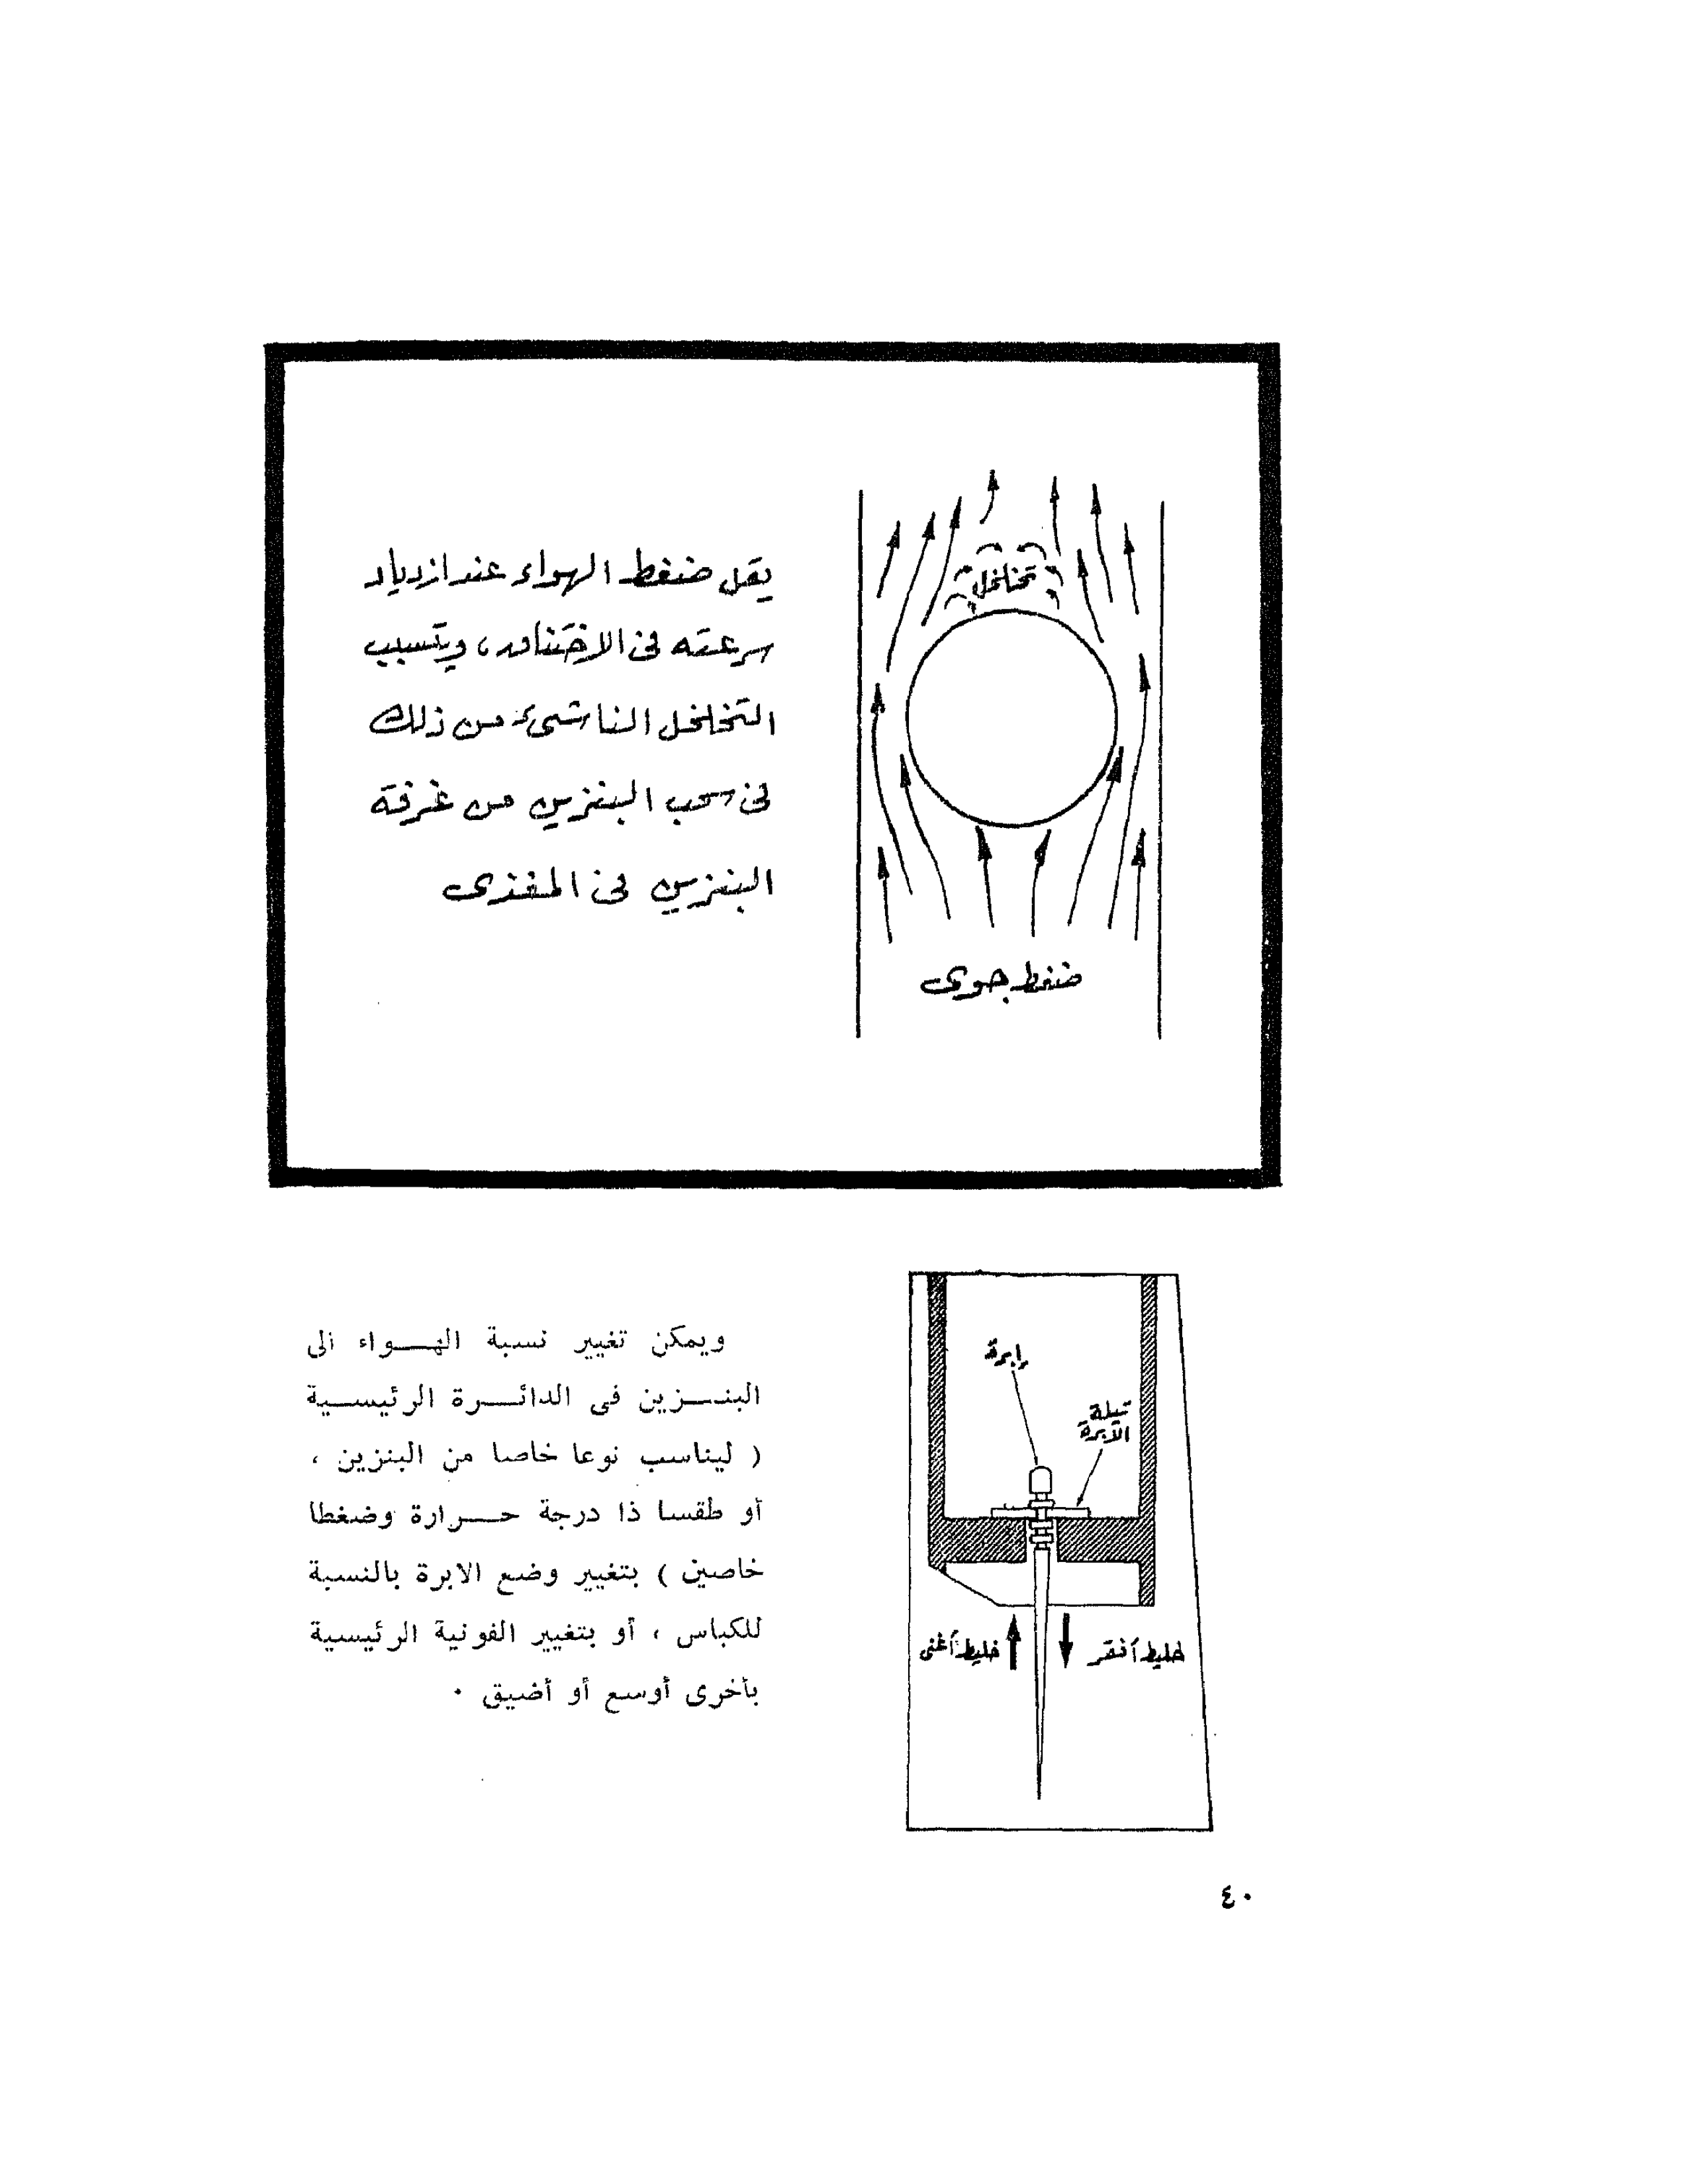 تخلخل
ضغط جوى
يقل ضغط الهواء عند ازدياد
سرعته فى الاختناق، ويتسبب
التخلخل الناشىء من ذلك
فى سحب البنزين من غرفة
البنزين فى المغذى
إبرة
تيلة
الابرة
خليط أفقر
خليط أغنى
ويمكن تغيير نسبة الهـــواء الى
البنـــزين فى الدائـــرة الرئيســـية
( ليناسب نوعا خاصا من البنزين ،
أو طقسا ذا درجة حـــرارة وضغطا
خاصين ) بتغيير وضع الابرة بالنسبة
للكباس ، أو بتغيير الفونية الرئيسية
بأخرى أوسع أو أضيق ٠
٤٠